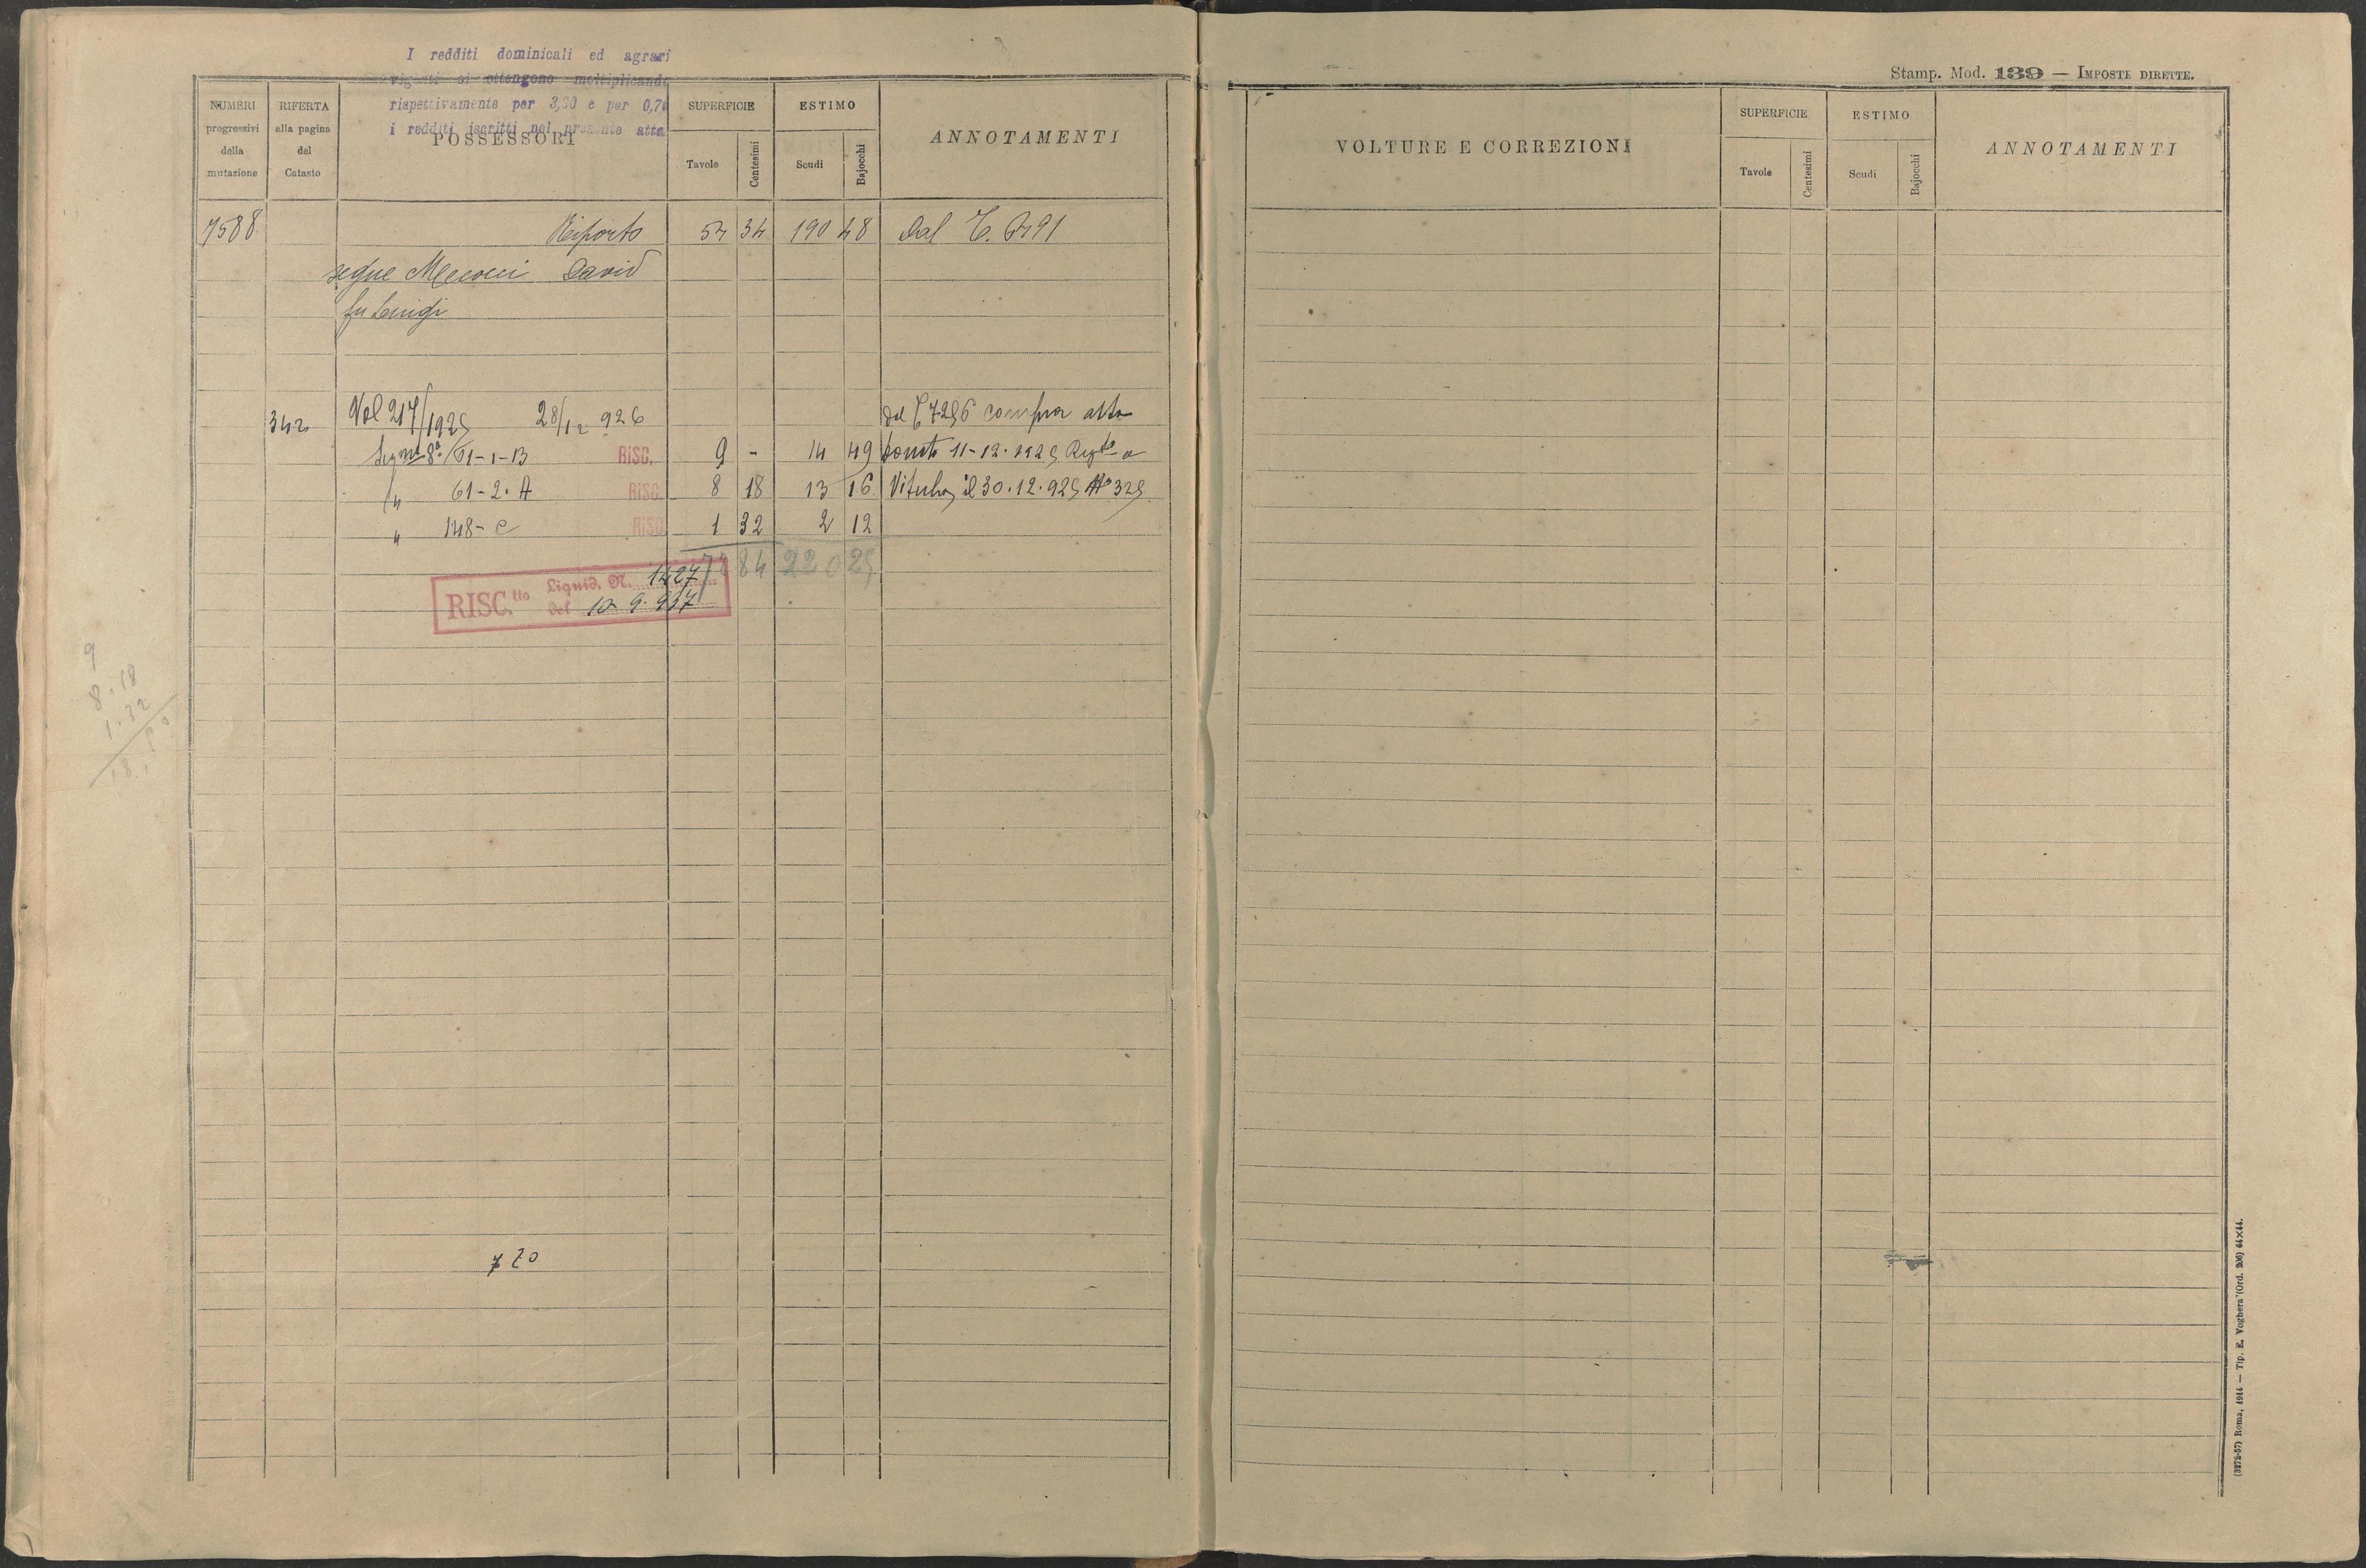 I redditi dominicali ed agrari
vigenti si ottengono moltiplicando
rispettivamente per 3,30 e per 0,70
i redditi iscritti nel presente atto
NUMERI progressivi della mutazione
RIFERTA alla pagina del Catasto
POSSESSORI
SUPERFICIE
Tavole
Centesimi
ESTIMO
Scudi
Bajocchi
ANNOTAMENTI
7588 Riporto 54 34 190 48 Dal
segue Mecocci David
fu Luigi
342 Vol 217/1925 28/12 926 dal 7296 compra atto
Segue 8ª 61-1-B RISC. 9 - 14 49 11-12-1925 a
" 61-2-A RISC. 8 18 13 16 il 30.12.925 Nº 325
" 148-C RISC. 1 32 2 12
84 220 25
RISC.tto Liquid. N. 1427
del 10-9-937
9
8.18
1.32
18.50
720
Stamp. Mod. 139 — IMPOSTE DIRETTE.
VOLTURE E CORREZIONI
SUPERFICIE
Tavole
Centesimi
ESTIMO
Scudi
Bajocchi
ANNOTAMENTI
(3275-57) Roma, 1914 — Tip. E. Voghera (Ord. 206) 64×44.